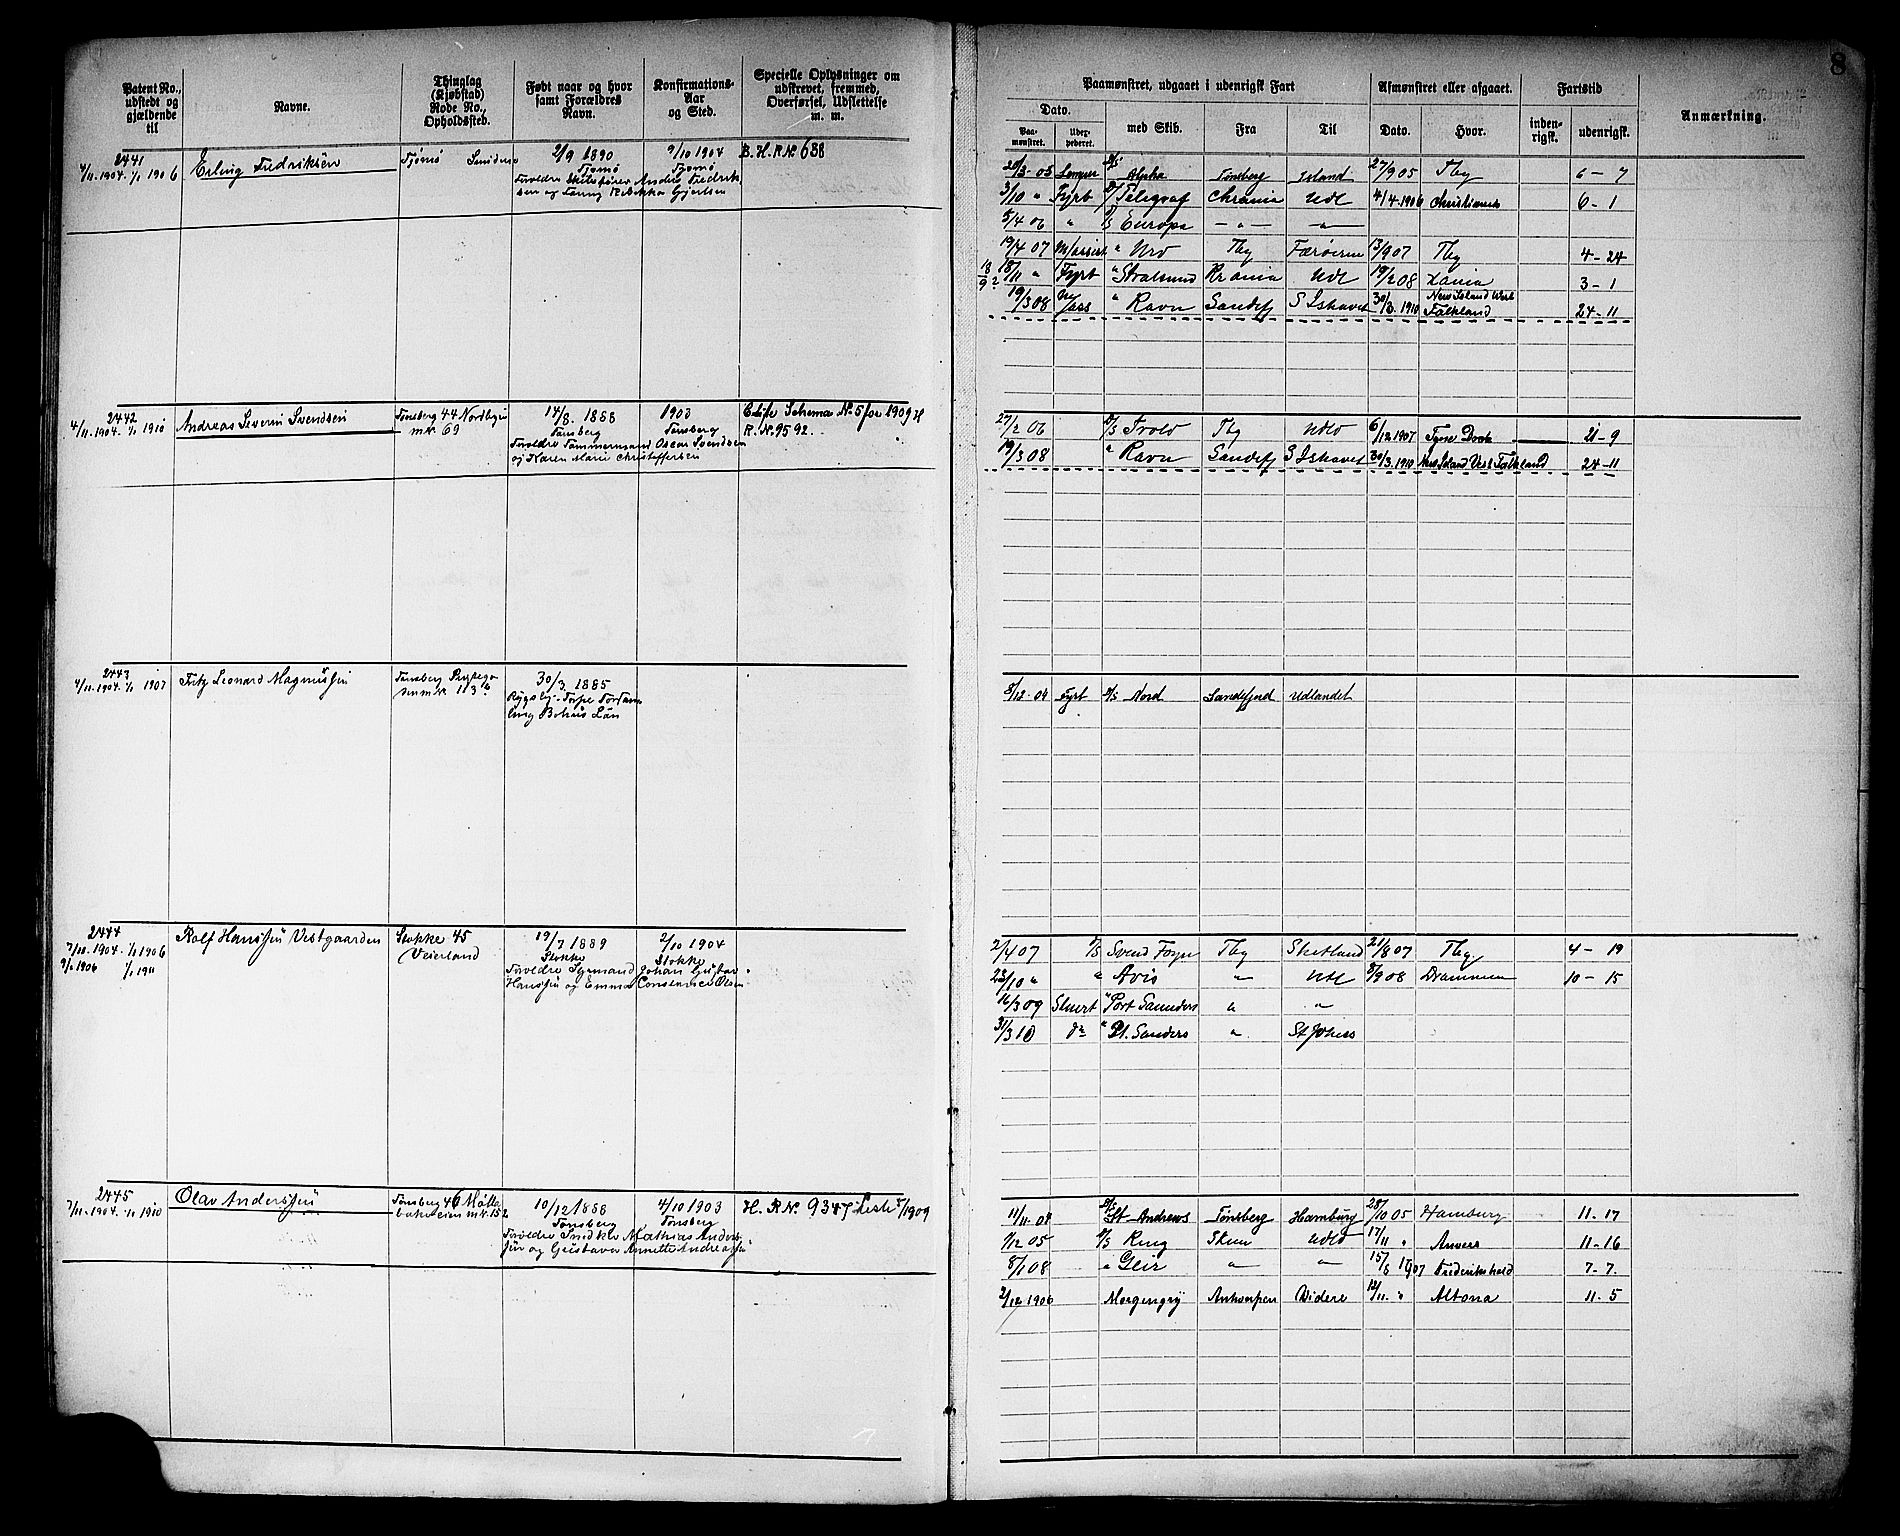 8
Patent No., udstedt og gjældende til
Navne.
Thinglag (Kjøbstad) Rode No., Opholdssted.
Født naar og hvor samt Forældres Navn.
Konfirmations-Aar og Sted.
Specielle Oplysninger om udstrevet, fremmed, Overførsel, Udslettelse m. m.
Paamønstret, udgaaet i udenrigsk Fart
Dato.
Paamønstret.
med Skib.
Fra
Til
Afmønstret eller afgaaet.
Dato.
Hvor.
Fartstid
indenrigsk.
udenrigsk.
Anmærkning.
2441
4/11. 1904. 1/1 1906
Erling Fredriksen
Tjømø
2/9 1890
Tjømø
9/10 1904
Tjømø
B. H. R. No 638
28/3. 05 Alpha Tønsberg Island 27/9 05 Tbg 6 - 7
3/10 " Fyrb Telegraf Chrania Udl 4/4. 1906 6 - 1
5/4 06 " Europa - " - - " -
19/4 07 " Urd Tbg Færøerne 13/9 07 Tbg 4 - 24
18/11 " Fyrb " Stralsund Krania Udl 19/2 08 Xania 3 - 1
19/3 08 " Ravn Sandefj S Ishavet 30/3. 1910 New Island West Falkland 24 - 11
2442
4/11. 1904. 1/1 1910
Andreas Severin Svendsen
Tønsberg 44 Nordbyen
m№ 69
14/8. 1888
Tønsberg
Forældre Tømmermand Oscar Svendsen
og Karen Marie Christoffersen
1903
Tønsberg
Schema No 5 for 1909 H
R. No. 9592.
27/2 06 D/S Trold Tbg Udld 6/12 1907 Tyne Dock 21 - 9
19/3 08 " Ravn Sandefj S Ishavet 30/3. 1910 New Island Vest Falkland 24 - 11
2443
4/11. 1904. 1/1 1907
Fritz Leonard Magnussen
Tønsberg
30/3. 1885
8/12. 04 Fyrb D/S Nord Sandefjord Udlandet
2444
7/11. 1904. 1/1 1906
9/1 1906 1/1 1911
Rolf Hanssen Vestgaarden
Stokke 45
Veierland
19/7 1889
Stokke
Forældre Sømand Johan Gustav
Hanssen og Emma Constance Olsen
2/10 1904
Stokke
2/4 07 D/S Svend Foyn Tbg Shetland 21/8 07 Tbg 4 - 19
23/10 " " Avis " Udl 8/9 08 Drammen 10 - 15
16/3 09 Stuert " Port Saunders " "
31/3 10 do " Pt. Sanders " St Johns
2445
7/11. 1904. 1/1 1910
Olav Anderssen
Tønsberg 46 Mølle
bakken m№ 152
10/12 1888
Tønsberg
Forældre Snedker Mathias Anders-
sen og Gustava Annette Andreassen
4/10 1903
Tønsberg
H. R No 9347 Liste 5/1909
11/11. 04 St. Andrews Tønsberg Hamburg 28/10 05 Hamburg 11 - 17
2/12 05 D/S Ring Skien Udld 17/11 " Anvers 11 - 16
8/1 08 " Geir " " 15/8 1907 Frederikshald 7 - 7.
2/12 1906 Morgengry Antwerpen Videre 12/11. " Altona 11. 5